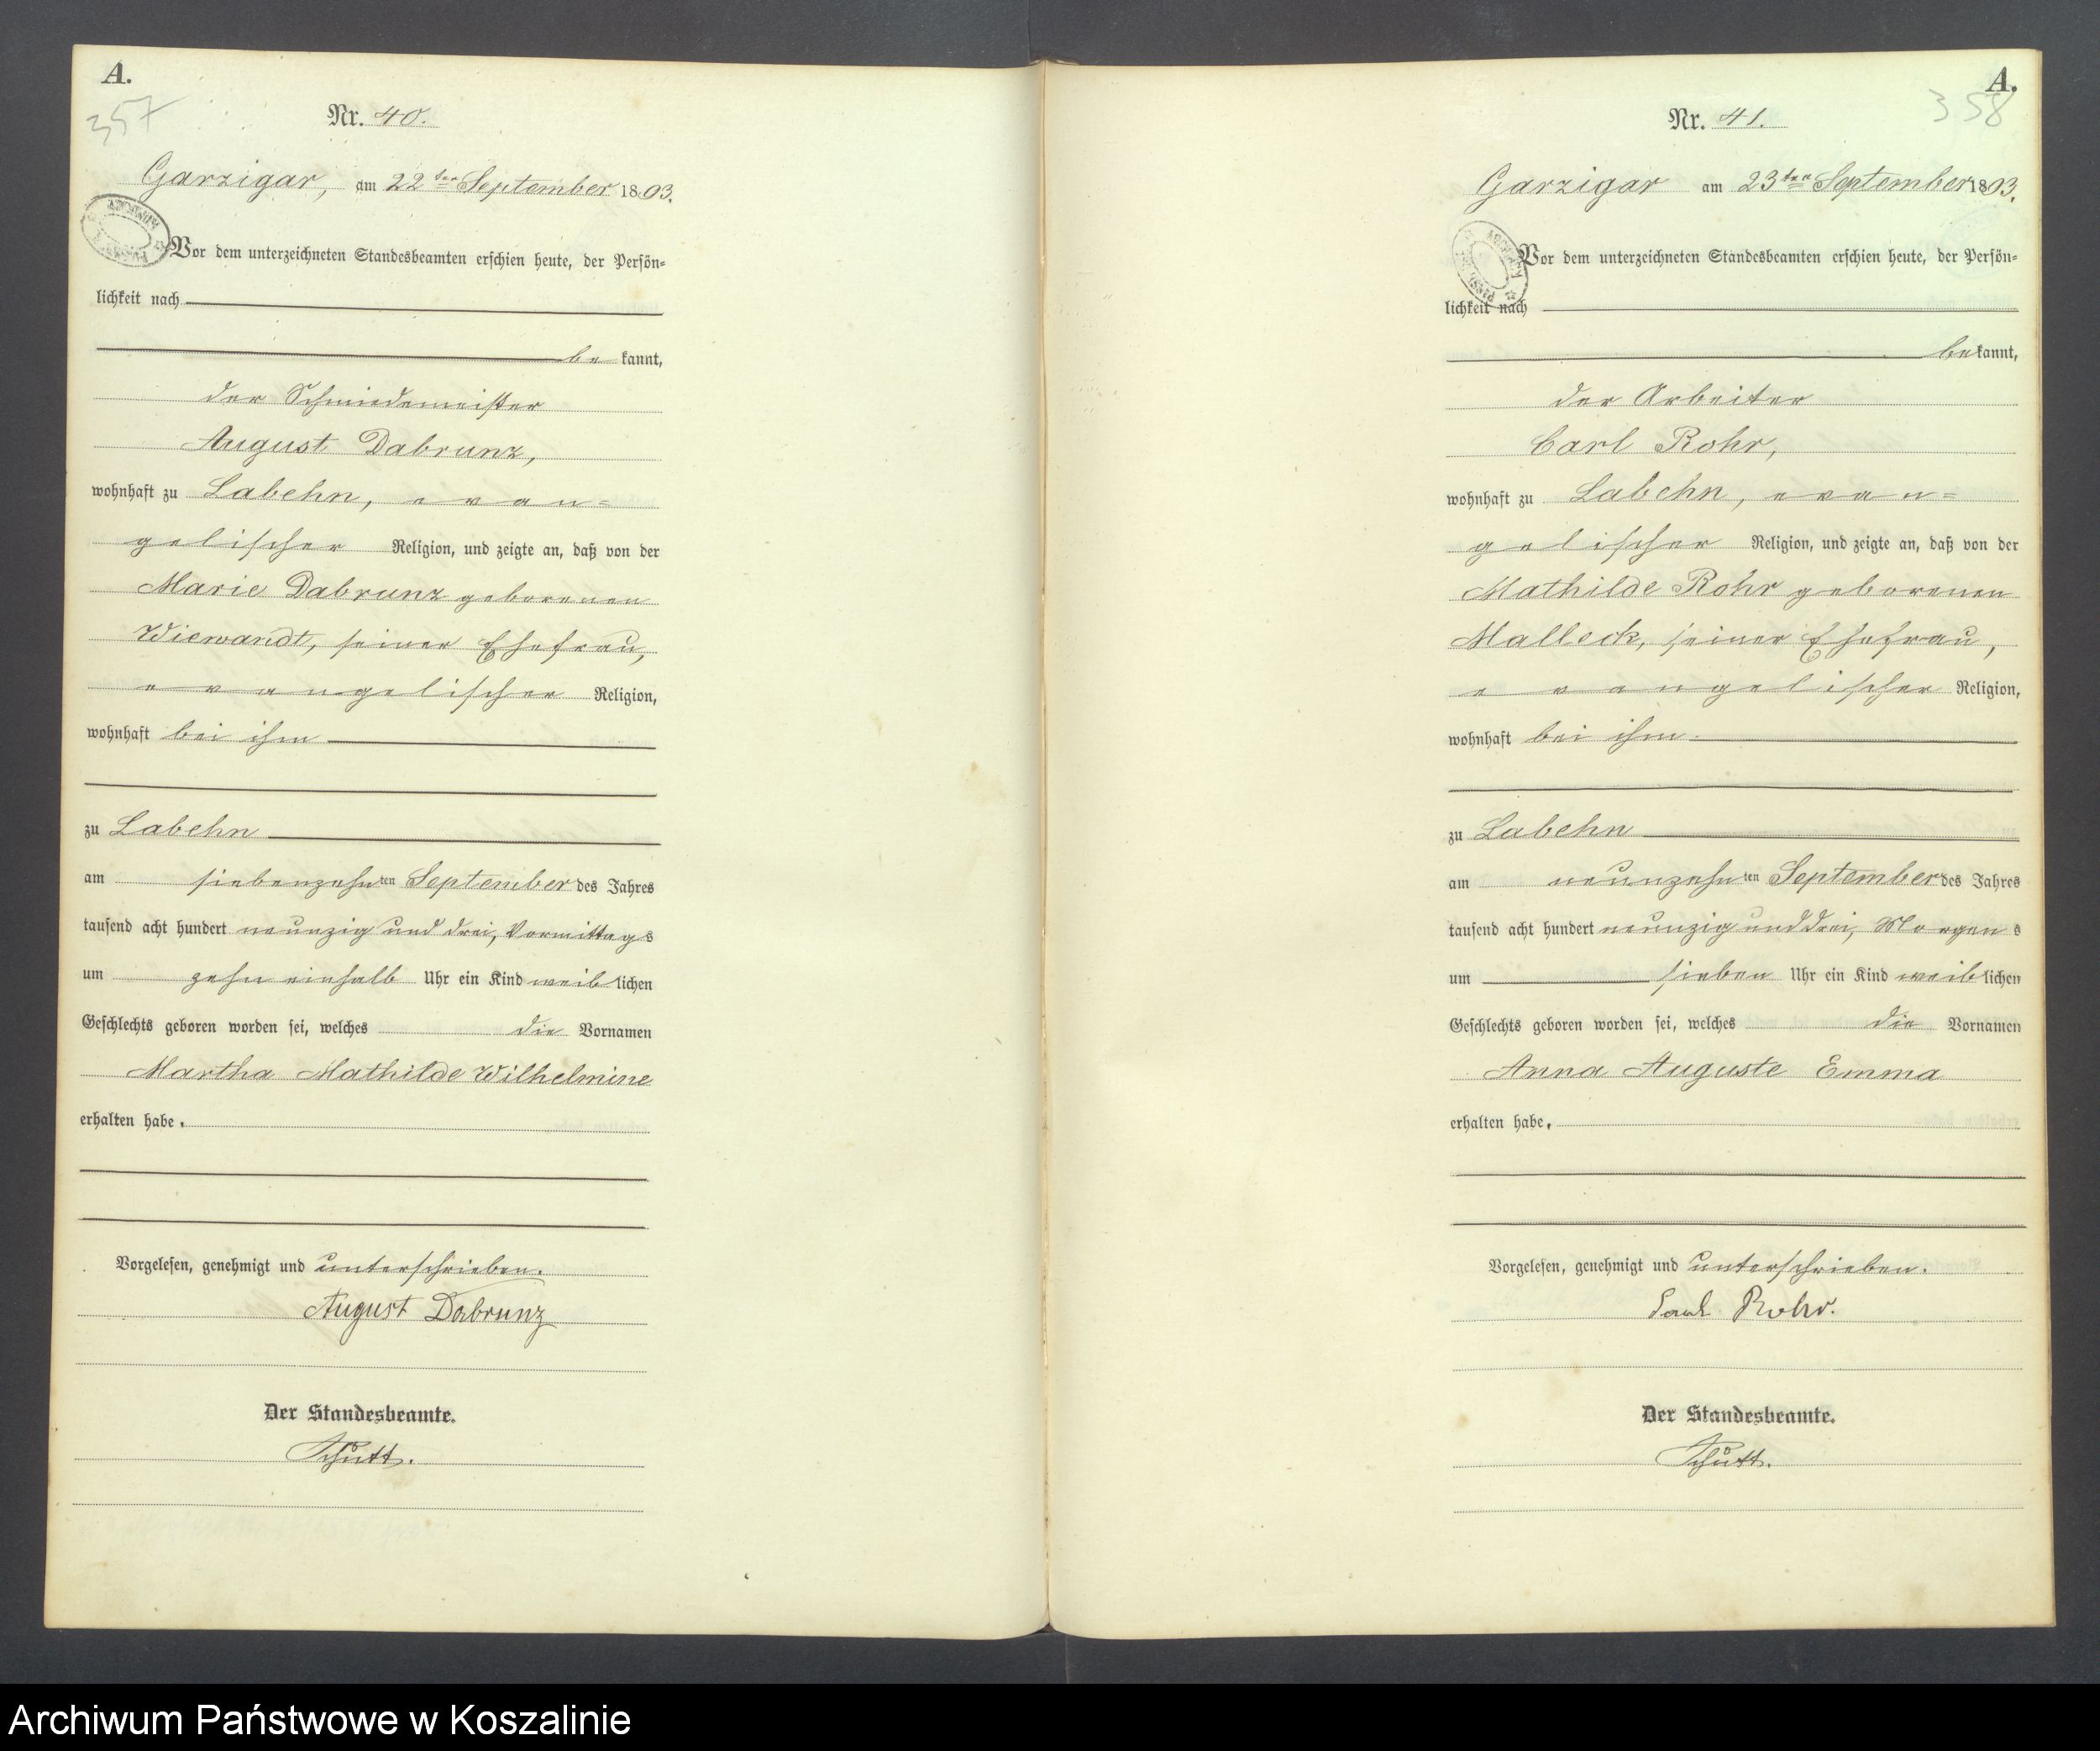 A.
357
Nr. 40.
Garzigar, am 22ten September 1893.
Vor dem unterzeichneten Standesbeamten erschien heute, der Persön-
lichkeit nach
be kannt,
der Schmiedemeister
August Dabrunz,
wohnhaft zu Labehn, evan-
gelischer Religion, und zeigte an, daß von der
Marie Dabrunz geborenen
Wiewandt, seiner Ehefrau,
evangelischer Religion,
wohnhaft bei ihm
zu Labehn
am siebenzehnten September des Jahres
tausend acht hundert neunzig und drei, Vormittags
um zehn einhalb Uhr ein Kind weiblichen
Geschlechts geboren worden sei, welches die Vornamen
Martha Mathilde Wilhelmine
erhalten habe.
Vorgelesen, genehmigt und unterschrieben.
August Dabrunz
Der Standesbeamte.
Schütt.
A.
358
Nr. 41.
Garzigar am 23ten September 1893.
Vor dem unterzeichneten Standesbeamten erschien heute, der Persön-
lichkeit nach
bekannt,
der Arbeiter
Carl Rohr,
wohnhaft zu Labehn, evan-
gelischer Religion, und zeigte an, daß von der
Mathilde Rohr geborenen
Malleck, seiner Ehefrau,
evangelischer Religion,
wohnhaft bei ihm
zu Labehn
am neunzehnten September des Jahres
tausend acht hundert neunzig und drei, Morgens
um sieben Uhr ein Kind weiblichen
Geschlechts geboren worden sei, welches die Vornamen
Anna Auguste Emma
erhalten habe.
Vorgelesen, genehmigt und unterschrieben.
Rohr.
Der Standesbeamte.
Schütt.
Archiwum Państwowe w Koszalinie